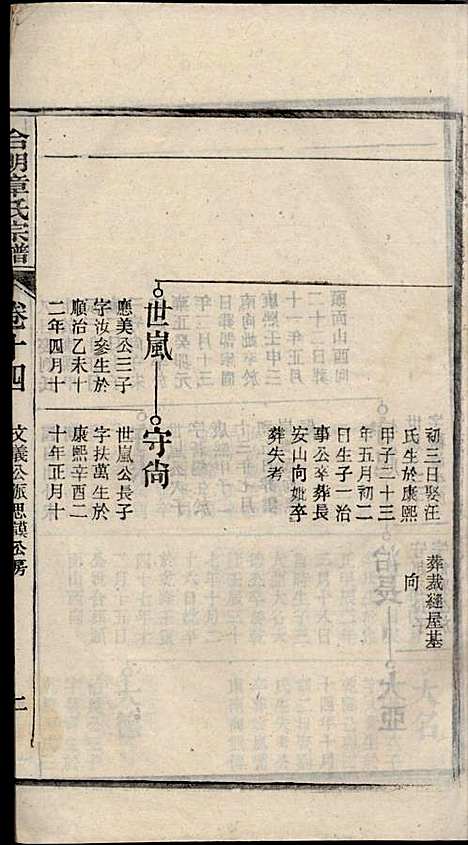 初三日娶汪
氏生於康熙
甲子二十三
年五月初二
日生子一治
事公卒葬長
安山向妣卒
葬失考
葬裁縫屋基
向
世嵐
應美公三子
字汝參生於
順治乙未十
二年四月十
守尙
世嵐公長子
字扶萬生於
康熙辛酉二
十年正月十
章氏宗譜
卷十四
文義公派思謨公房
二